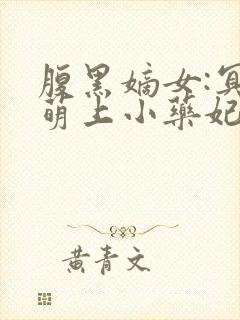 腹黑嫡女:冥
萌上小藥妃
黃青文